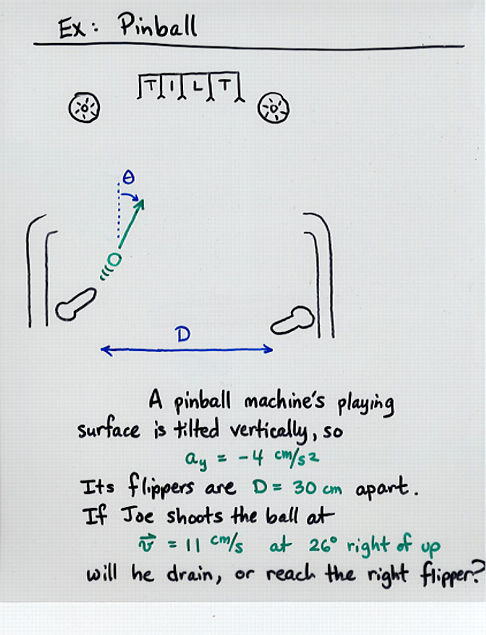 Ex: Pinball
TILT
θ
D
A pinball machine's playing
surface is tilted vertically, so
a_y = -4 cm/s²
Its flippers are D = 30 cm apart.
If Joe shoots the ball at
v⃗ = 11 cm/s at 26° right of up
will he drain, or reach the right flipper?